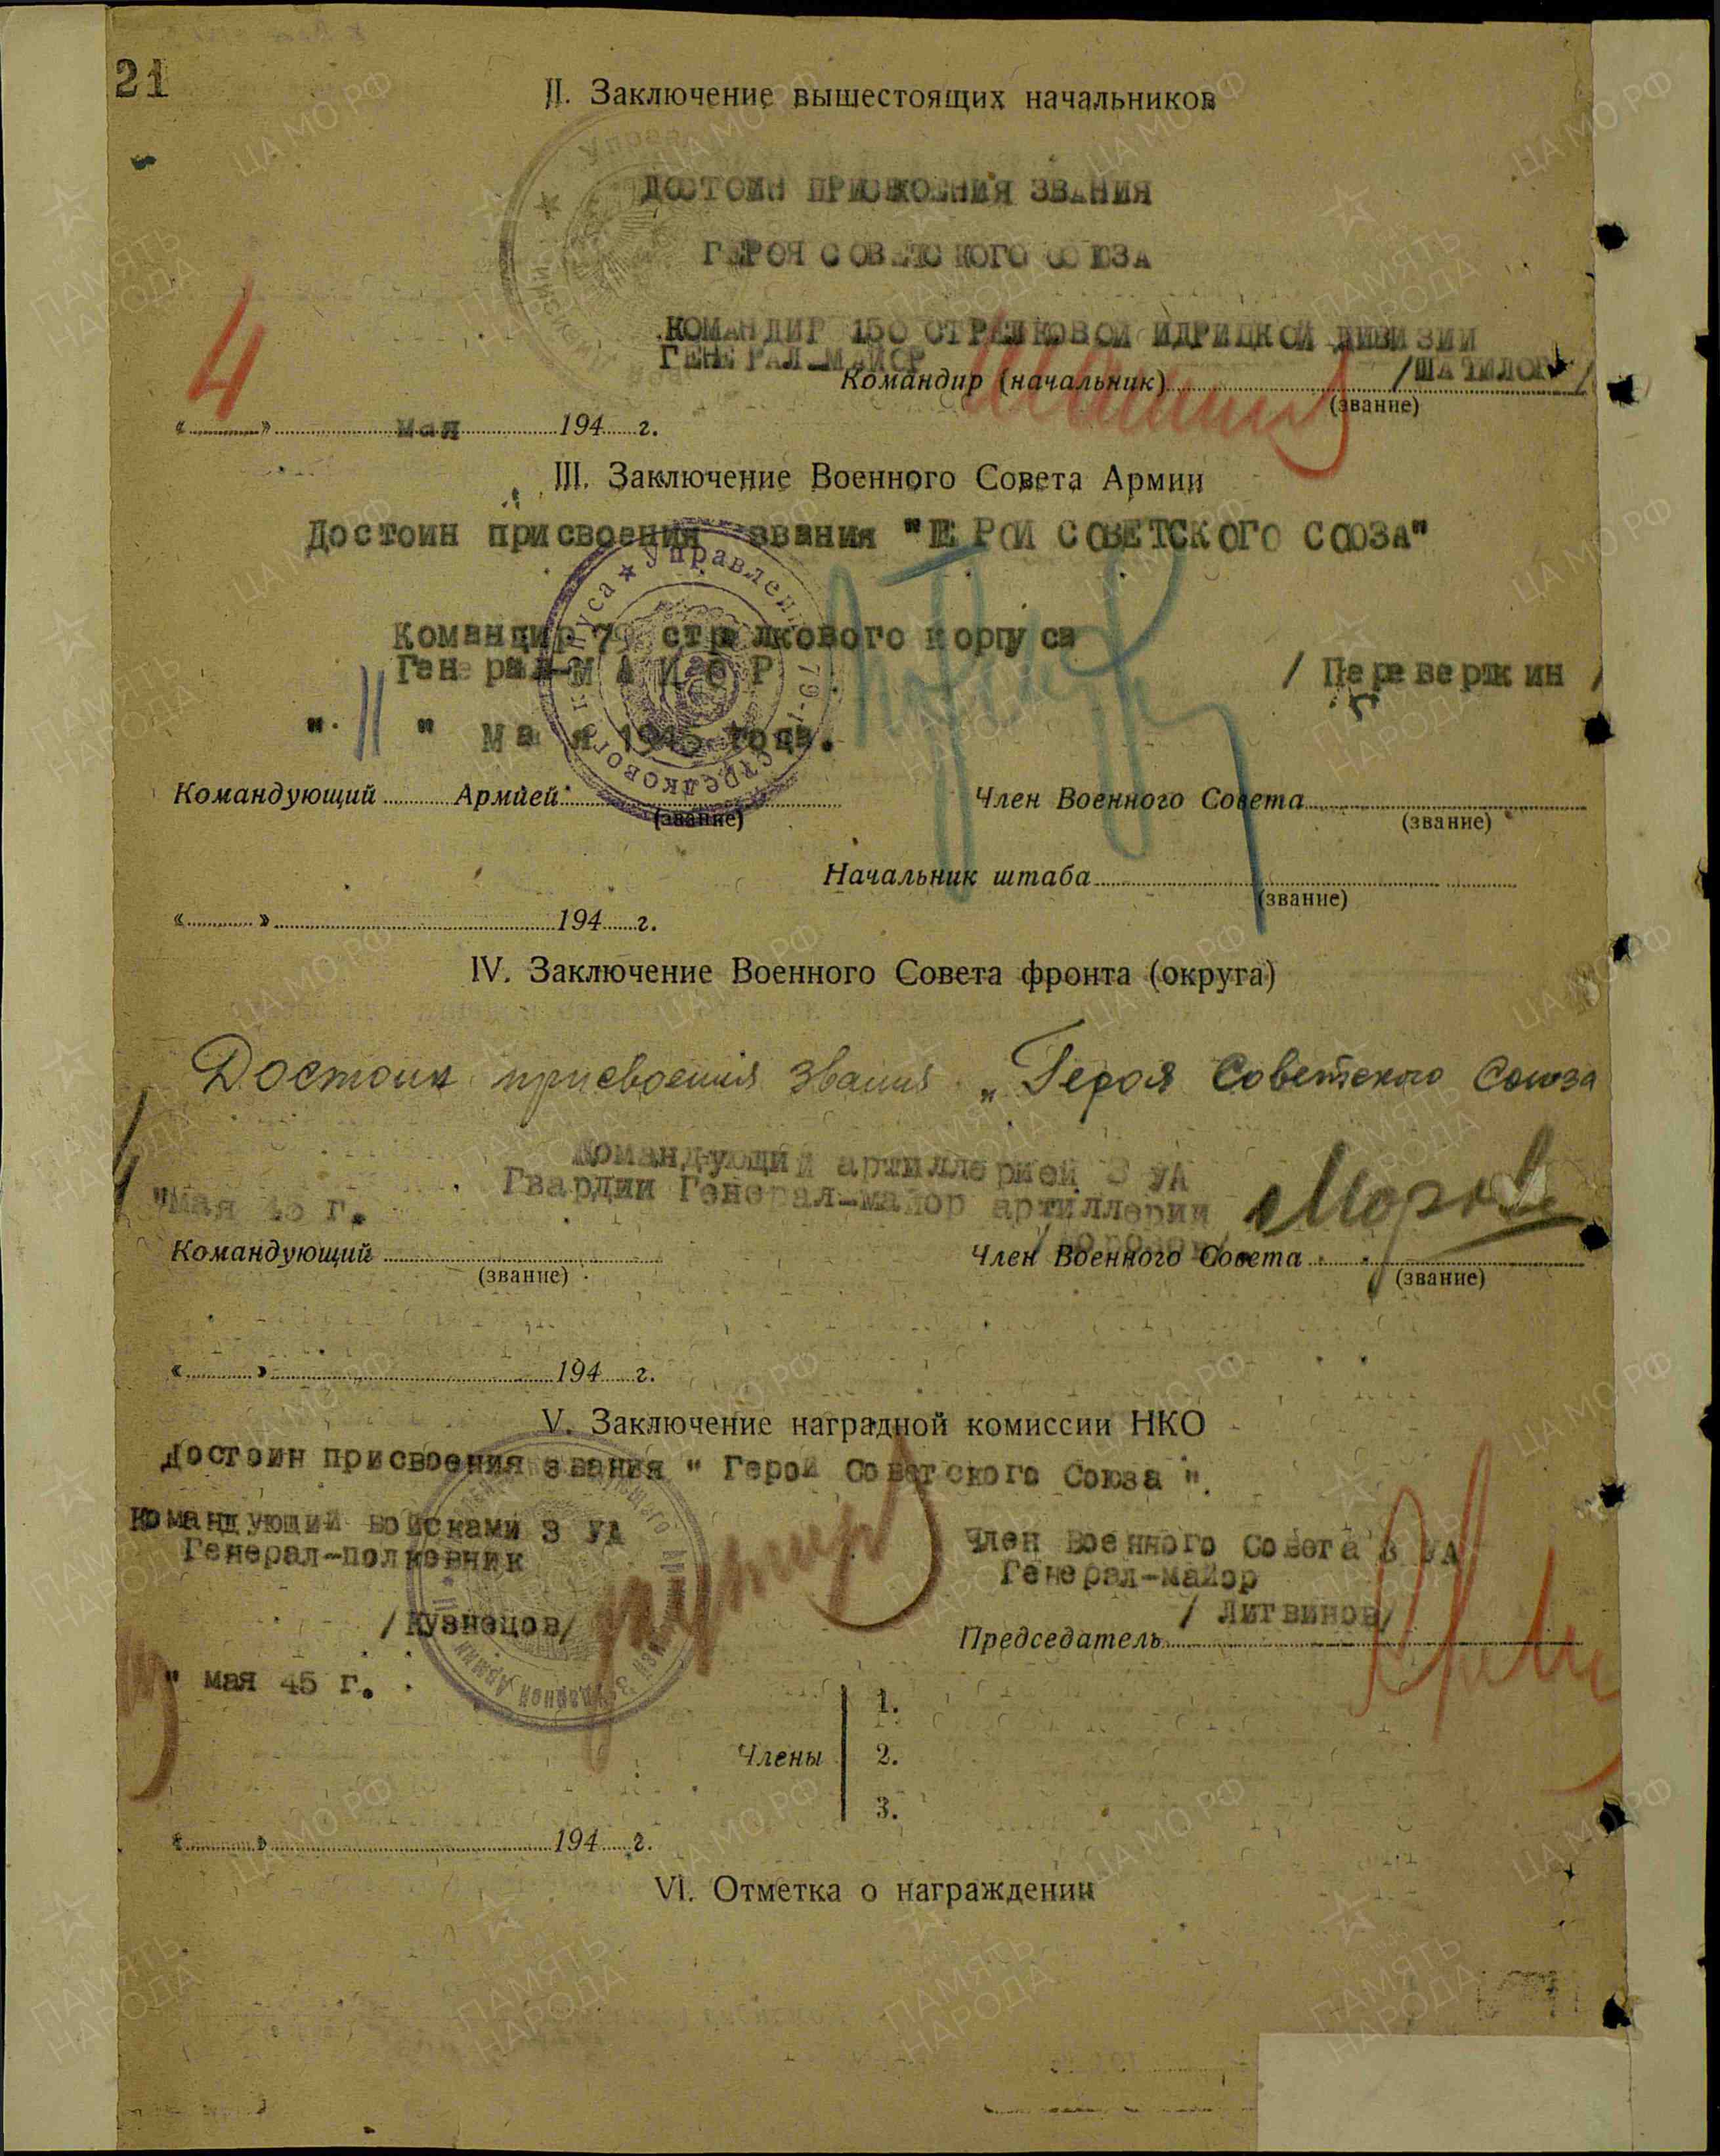 21
II. Заключение вышестоящих начальников
ДОСТОИН ПРИСВОЕНИЯ ЗВАНИЯ
ГЕРОЯ СОВЕТСКОГО СОЮЗА
КОМАНДИР 150 СТРЕЛКОВОЙ ИДРИЦКОЙ ДИВИЗИИ
ГЕНЕРАЛ-МАЙОР
Командир (начальник) /ШАТИЛОВ/
(звание)
« 4 » мая 194 г.
III. Заключение Военного Совета Армии
Достоин присвоения звания "ГЕРОЙ СОВЕТСКОГО СОЮЗА"
Командир 79 стрелкового корпуса
Генерал-МАЙОР / Переверткин /
" 11 " мая 1945 года.
Командующий Армией Член Военного Совета
(звание) (звание)
Начальник штаба
(звание)
« » 194 г.
IV. Заключение Военного Совета фронта (округа)
Достоин присвоения звания „Героя Советского Союза
Командующий артиллерией 3 УА
Гвардии Генерал-майор артиллерии
"мая 45 г. /Морозов/
Командующий Член Военного Совета
(звание) (звание)
« » 194 г.
V. Заключение наградной комиссии НКО
Достоин присвоения звания " Герой Советского Союза ".
Командующий войсками 3 УА Член Военного Совета 3 УА
Генерал-полковник Генерал-майор
/Кузнецов/ / Литвинов/
Председатель
" мая 45 г.
1.
Члены 2.
3.
« » 194 г.
VI. Отметка о награждении